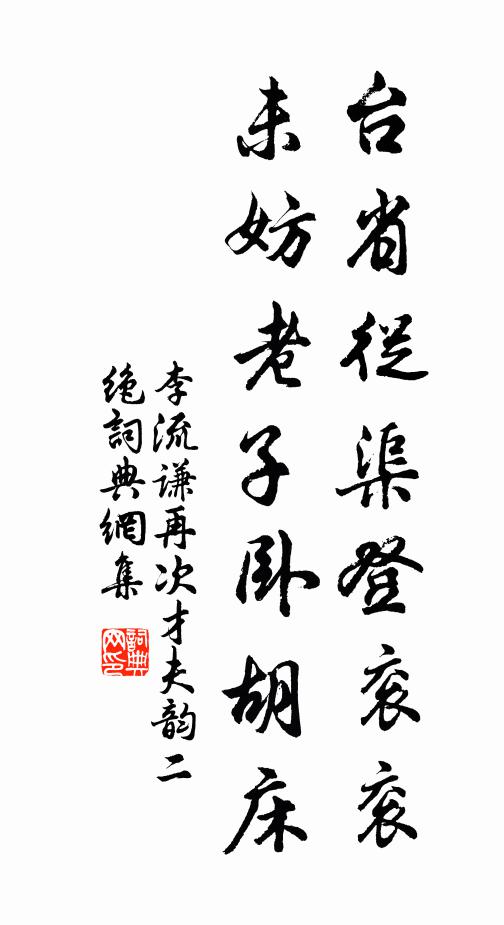 台省從渠登衮衮
未妨老子卧胡床
李流谦再次才夫韵二
绝詞典網集
詞典
网印